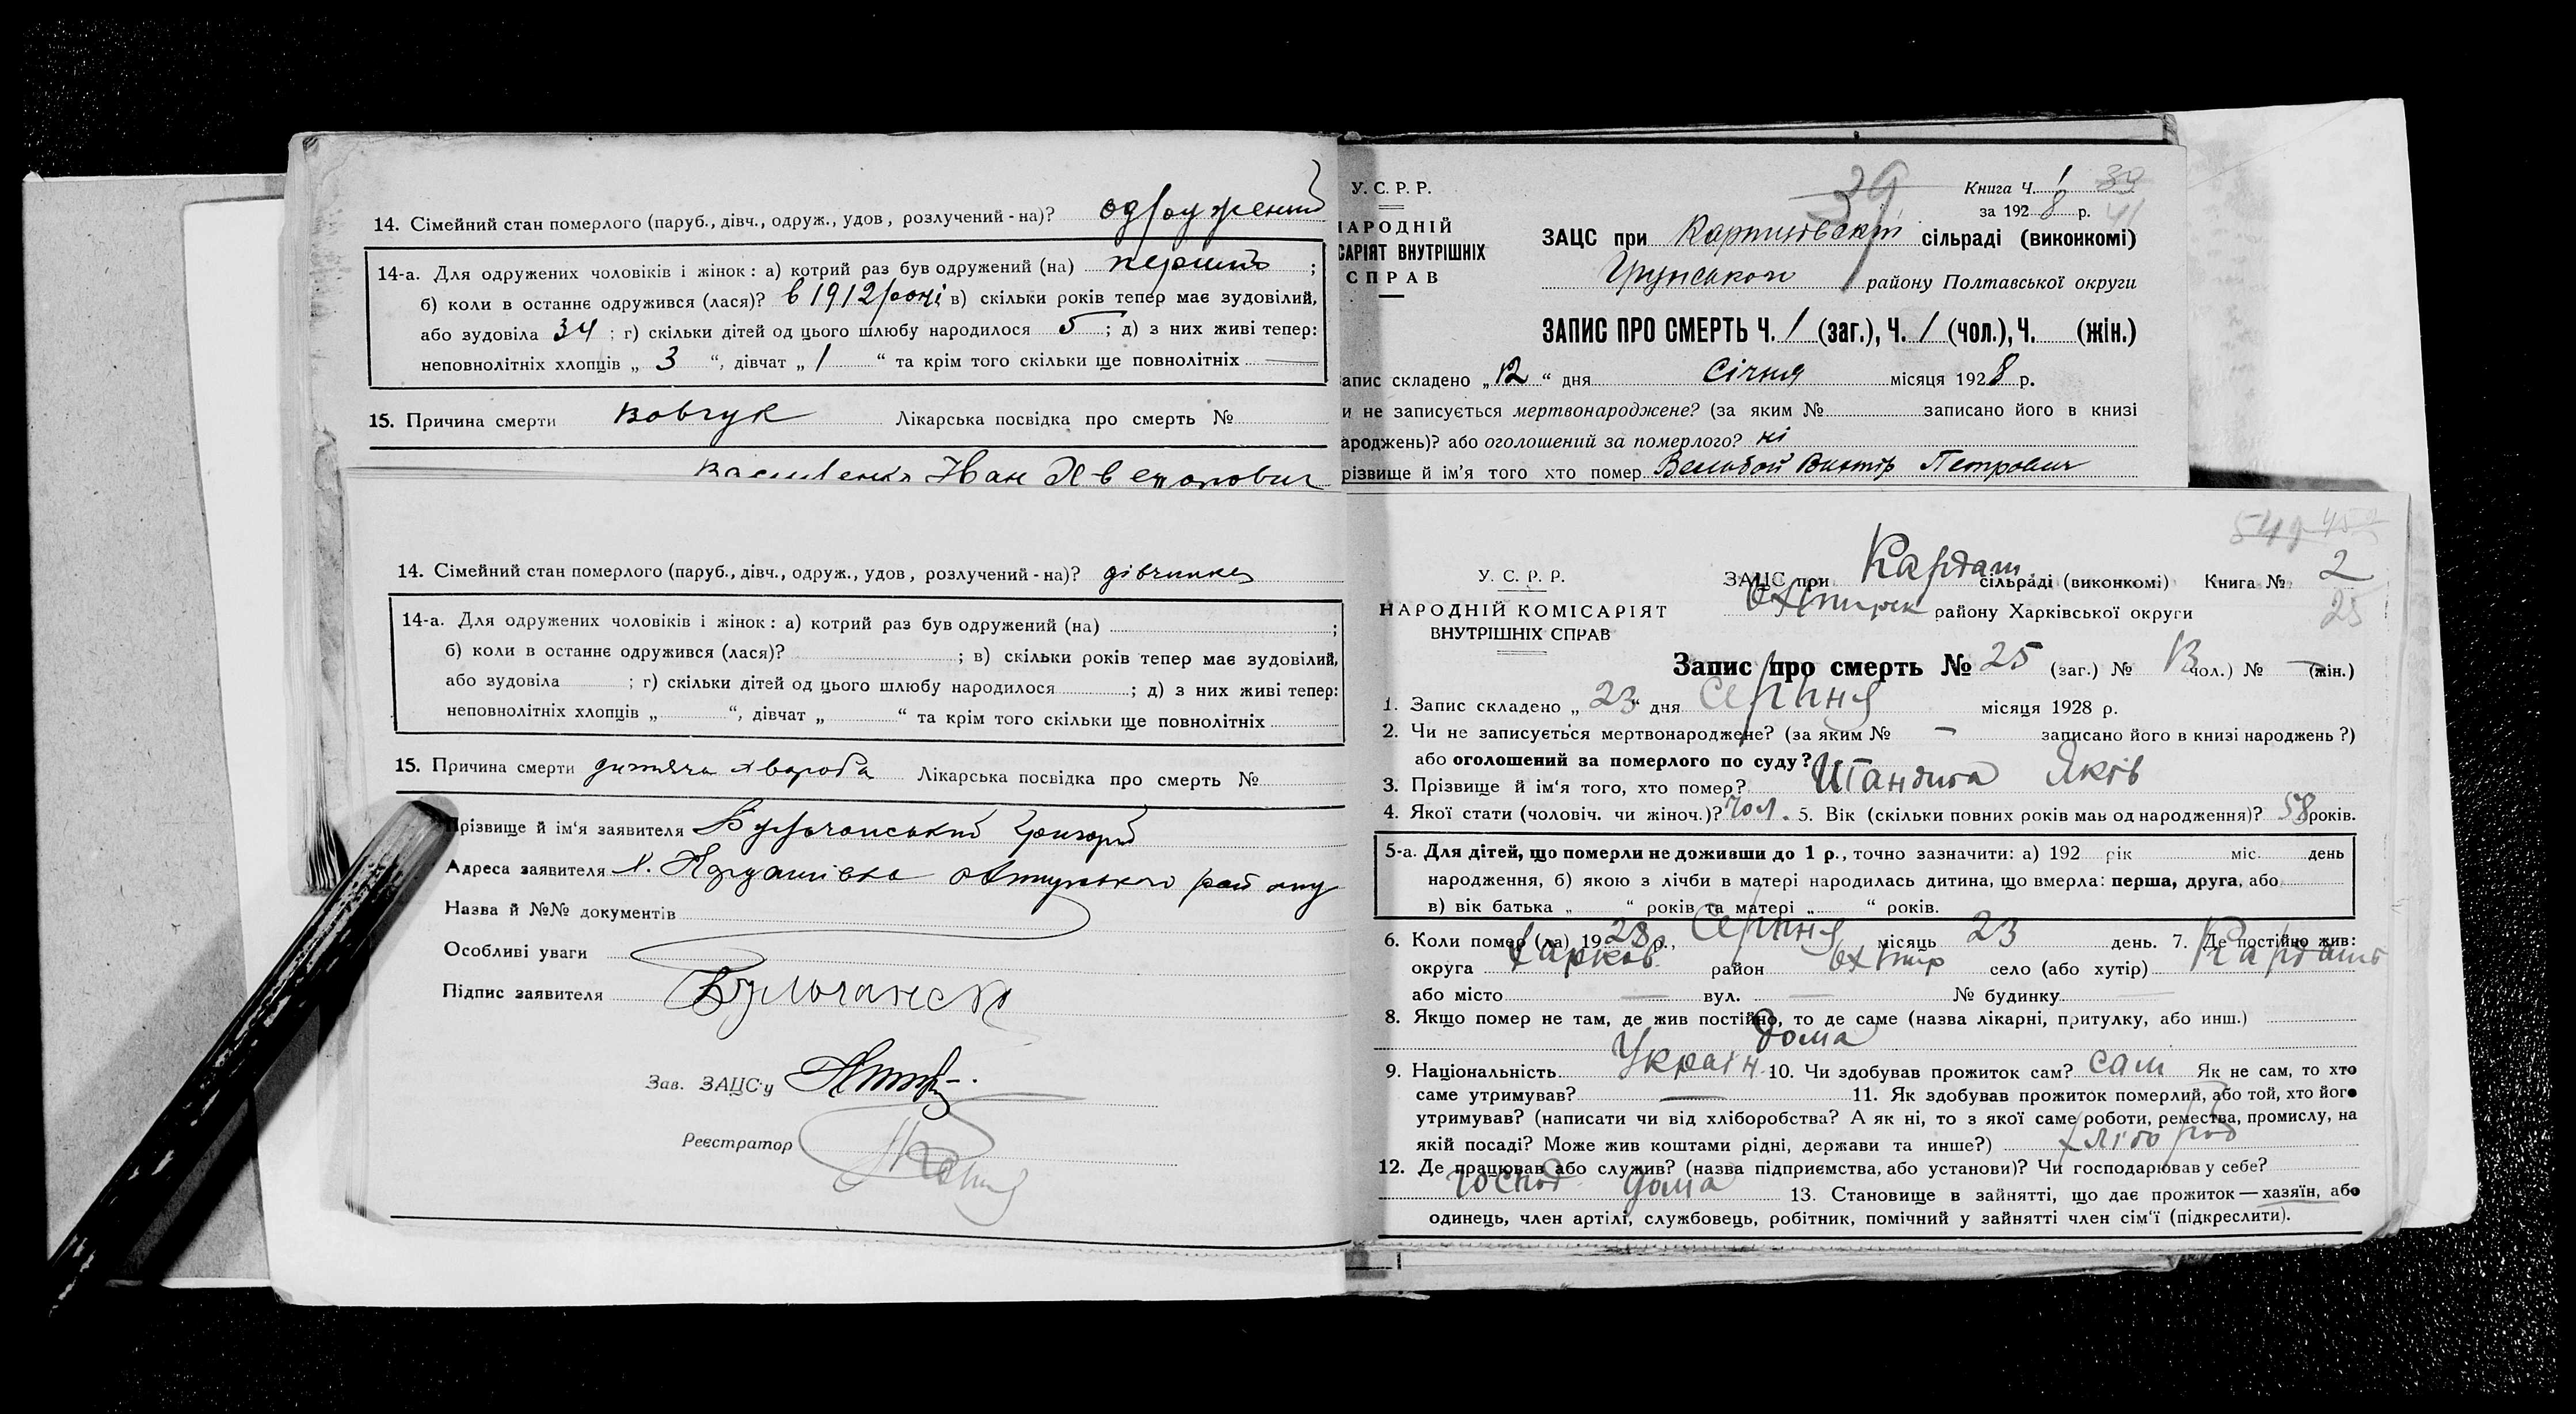 14. Сімейний стан померлого (паруб., дівч., одруж., удов, розлучений-на)? одружений
14-а. Для одружених чоловіків і жінок: а) котрий раз був одружений (на) перший ;
б) коли в останнє одружився (лася)? в 1912 році в) скільки років тепер має зудовілий,
або зудовіла 34 ; г) скільки дітей од цього шлюбу народилося 5 ; д) з них живі тепер:
неповнолітніх хлопців „ 3 “, дівчат „ 1 “ та крім того скільки ще повнолітніх
15. Причина смерти вовчук Лікарська посвідка про смерть №
Іван
14. Сімейний стан померлого (паруб., дівч., одруж., удов, розлучений-на)? дівчинка
14-а. Для одружених чоловіків і жінок: а) котрий раз був одружений (на) ;
б) коли в останнє одружився (лася)? ; в) скільки років тепер має зудовілий,
або зудовіла ; г) скільки дітей од цього шлюбу народилося ; д) з них живі тепер:
неповнолітніх хлопців „ “, дівчат „ “ та крім того скільки ще повнолітніх
15. Причина смерти дитяча хвороба Лікарська посвідка про смерть №
Прізвище й ім‘я заявителя
Адреса заявителя
Назва й №№ документів
Особливі уваги
Підпис заявителя
Зав. ЗАЦС‘у
Реєстратор
39
У. С. Р. Р.
АРОДНІЙ
САРІЯТ ВНУТРІШНІХ
СПРАВ
Книга Ч. 1
за 1928 р.
ЗАЦС при сільраді (виконкомі)
району Полтавської округи
ЗАПИС ПРО СМЕРТЬ Ч. 1 (заг.), Ч. 1 (чол.), Ч. (жін.)
апис складено „ 12 “ дня Січня місяця 1928 р.
и не записується мертвонароджене? (за яким № записано його в книзі
ароджень)? або оголошений за померлого? ні
різвище й ім‘я того хто помер Петрович
У. С. Р. Р.
НАРОДНІЙ КОМІСАРІЯТ
ВНУТРІШНІХ СПРАВ
ЗАЦС при Кардаш. сільраді (виконкомі) Книга № 2
Охтирск району Харківської округи
25
Запис про смерть № 25 (заг.) № 13 чол.) № — (жін.)
1. Запис складено „ 23 “ дня Серпня місяця 1928 р.
2. Чи не записується мертвонароджене? (за яким № — записано його в книзі народжень?)
або оголошений за померлого по суду?
3. Прізвище й ім‘я того, хто помер? Яків
4. Якої стати (чоловіч. чи жіноч.)? чол. 5. Вік (скільки повних років мав од народження)? 58 років.
5-а. Для дітей, що померли не доживши до 1 р., точно зазначити: а) 192 рік міс. день
народження, б) якою з лічби в матері народилась дитина, що вмерла: перша, друга, або
в) вік батька „ “ років та матері „ “ років.
6. Коли помер (ла) 1928 р., Серпня місяць 23 день. 7. Де постійно жив:
округа Харков район Охтир село (або хутір) Кардаш
або місто — вул. — № будинку —
8. Якщо помер не там, де жив постійно, то де саме (назва лікарні, притулку, або инш.)
дома
9. Національність Україн 10. Чи здобував прожиток сам? сам Як не сам, то хто
саме утримував? — 11. Як здобував прожиток померлий, або той, хто його
утримував? (написати чи від хліборобства? А як ні, то з якої саме роботи, ремества, промислу, на
якій посаді? Може жив коштами рідні, держави та инше?) хлібороб
12. Де працював або служив? (назва підприємства, або установи)? Чи господарював у себе?
господ дома 13. Становище в зайнятті, що дає прожиток — хазяїн, або
одинець, член артілі, службовець, робітник, помічний у зайнятті член сім‘ї (підкреслити).